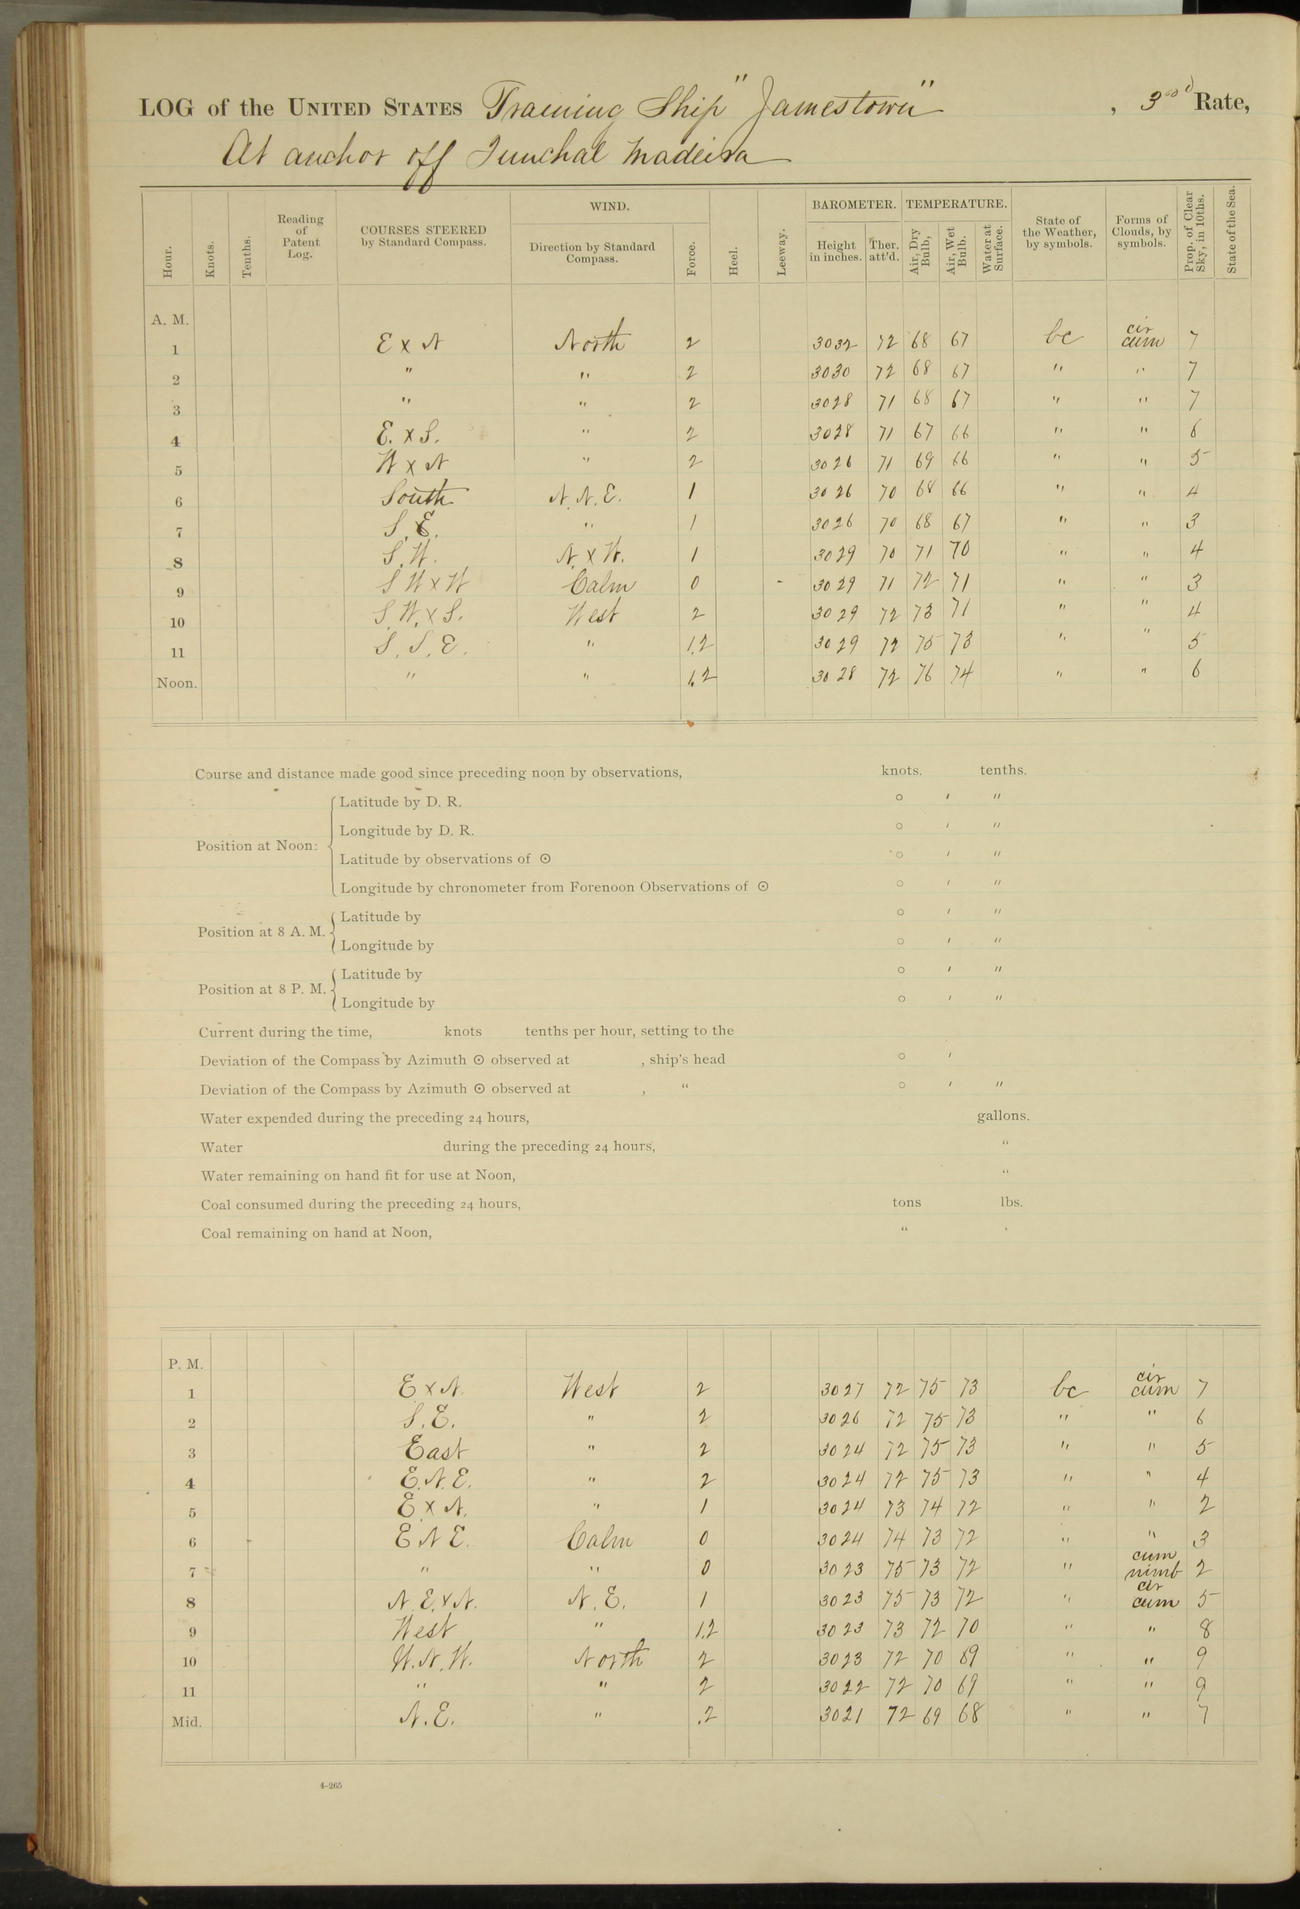 LOG of the UNITED STATES Training Ship "Jamestown", 3rd Rate,
At anchor off Funchal Madeira
Hour. Knots. Tenths. Reading of Patent Log. COURSES STEERED by Standard Compass. WIND. Direction by Standard Compass. Force. Heel. Leeway. BAROMETER. Height in inches. Ther. att'd. TEMPERATURE. Air, Dry Bulb, Air, Wet Bulb. Water at Surface. State of the Weather, by symbols. Forms of Clouds, by symbols. Prop. of Clear Sky, in 10ths. State of the Sea.
A. M.
1 E x N North 2 3032 72 68 67 bc cir cum 7
2 " " 2 3030 72 68 67 " " 7
3 " " 2 3028 71 68 67 " " 7
4 E. x S. " 2 3028 71 67 66 " " 6
5 W x N " 2 3026 71 69 66 " " 5
6 South N.N.E. 1 3026 70 68 66 " " 4
7 S.E. " 1 3026 70 68 67 " " 3
8 S.W. N. x W. 1 3029 70 71 70 " " 4
9 S W x W Calm 0 3029 71 72 71 " " 3
10 S.W. x S. West 2 3029 72 73 71 " " 4
11 S.S.E. " 1.2 3029 72 75 73 " " 5
Noon. " " 1.2 3028 72 76 74 " " 6
Course and distance made good since preceding noon by observations, knots. tenths.
Position at Noon: Latitude by D. R. ° ′ ″
Longitude by D. R. ° ′ ″
Latitude by observations of ⊙ ° ′ ″
Longitude by chronometer from Forenoon Observations of ⊙ ° ′ ″
Position at 8 A. M. Latitude by ° ′ ″
Longitude by ° ′ ″
Position at 8 P. M. Latitude by ° ′ ″
Longitude by ° ′ ″
Current during the time, knots tenths per hour, setting to the
Deviation of the Compass by Azimuth ⊙ observed at , ship's head ° ′
Deviation of the Compass by Azimuth ⊙ observed at , " ° ′ ″
Water expended during the preceding 24 hours, gallons.
Water during the preceding 24 hours, "
Water remaining on hand fit for use at Noon, "
Coal consumed during the preceding 24 hours, tons lbs.
Coal remaining on hand at Noon, "
P. M.
1 E x N. West 2 3027 72 75 73 bc cir cum 7
2 S.E. " 2 3026 72 75 73 " " 6
3 East " 2 3024 72 75 73 " " 5
4 E.N.E. " 2 3024 72 75 73 " " 4
5 E x N. " 1 3024 73 74 72 " " 2
6 E N E. Calm 0 3024 74 73 72 " " 3
7 " " 0 3023 75 73 72 " cum nimb 2
8 N.E. x N. N.E. 1 3023 75 73 72 " cir cum 5
9 West " 1.2 3023 73 72 70 " " 8
10 W.N.W. North 2 3023 72 70 69 " " 9
11 " " 2 3022 72 70 69 " " 9
Mid. N.E. " .2 3021 72 69 68 " " 7
4-265